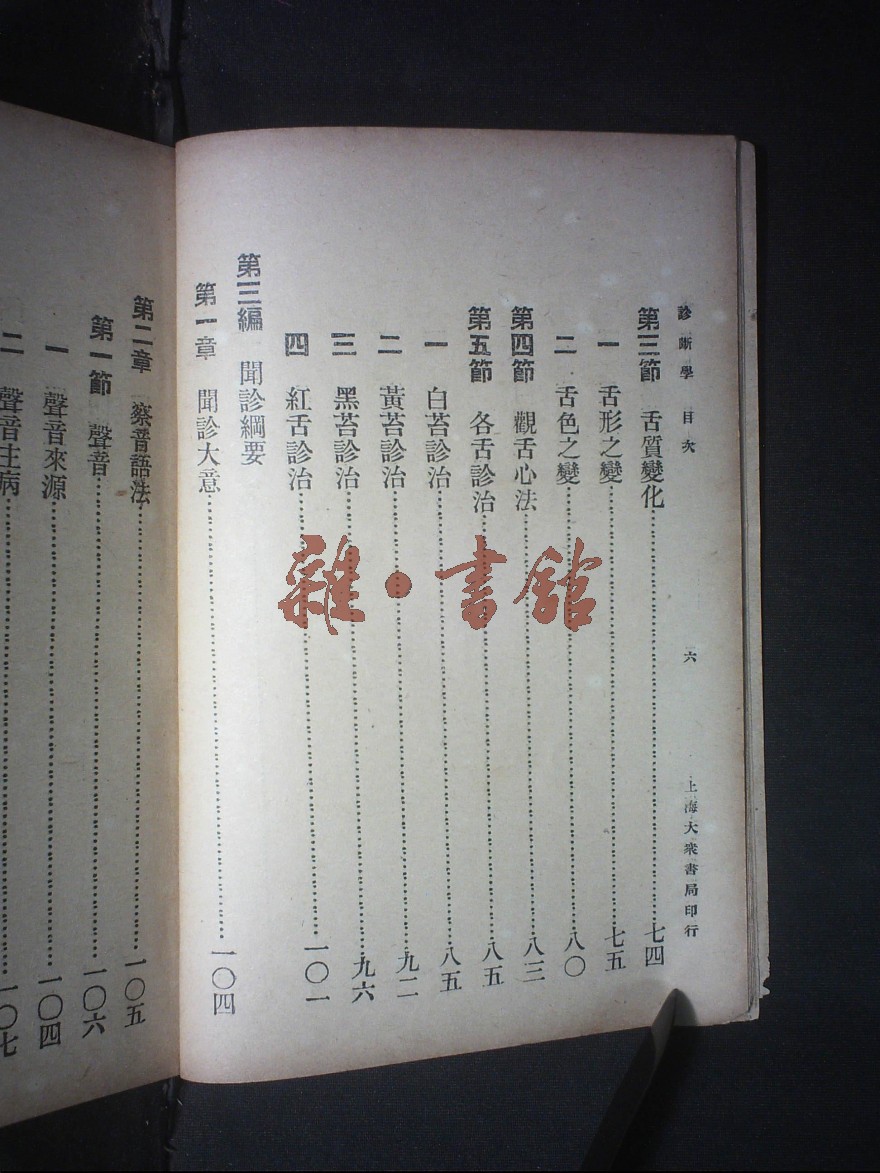 診斷學 目次 六 上海大衆書局印行
第三節 舌質變化……七四
一 舌形之變……七五
二 舌色之變……八〇
第四節 觀舌心法……八三
第五節 各舌診治……八五
一 白苔診治……八五
二 黃苔診治……九二
三 黑苔診治……九六
四 紅舌診治……一〇一
第三編 聞診綱要
第一章 聞診大意……一〇四
第二章 察音語法……一〇五
第一節 聲音……一〇六
一 聲音來源……一〇四
二 聲音主病……一〇七
雜·書館